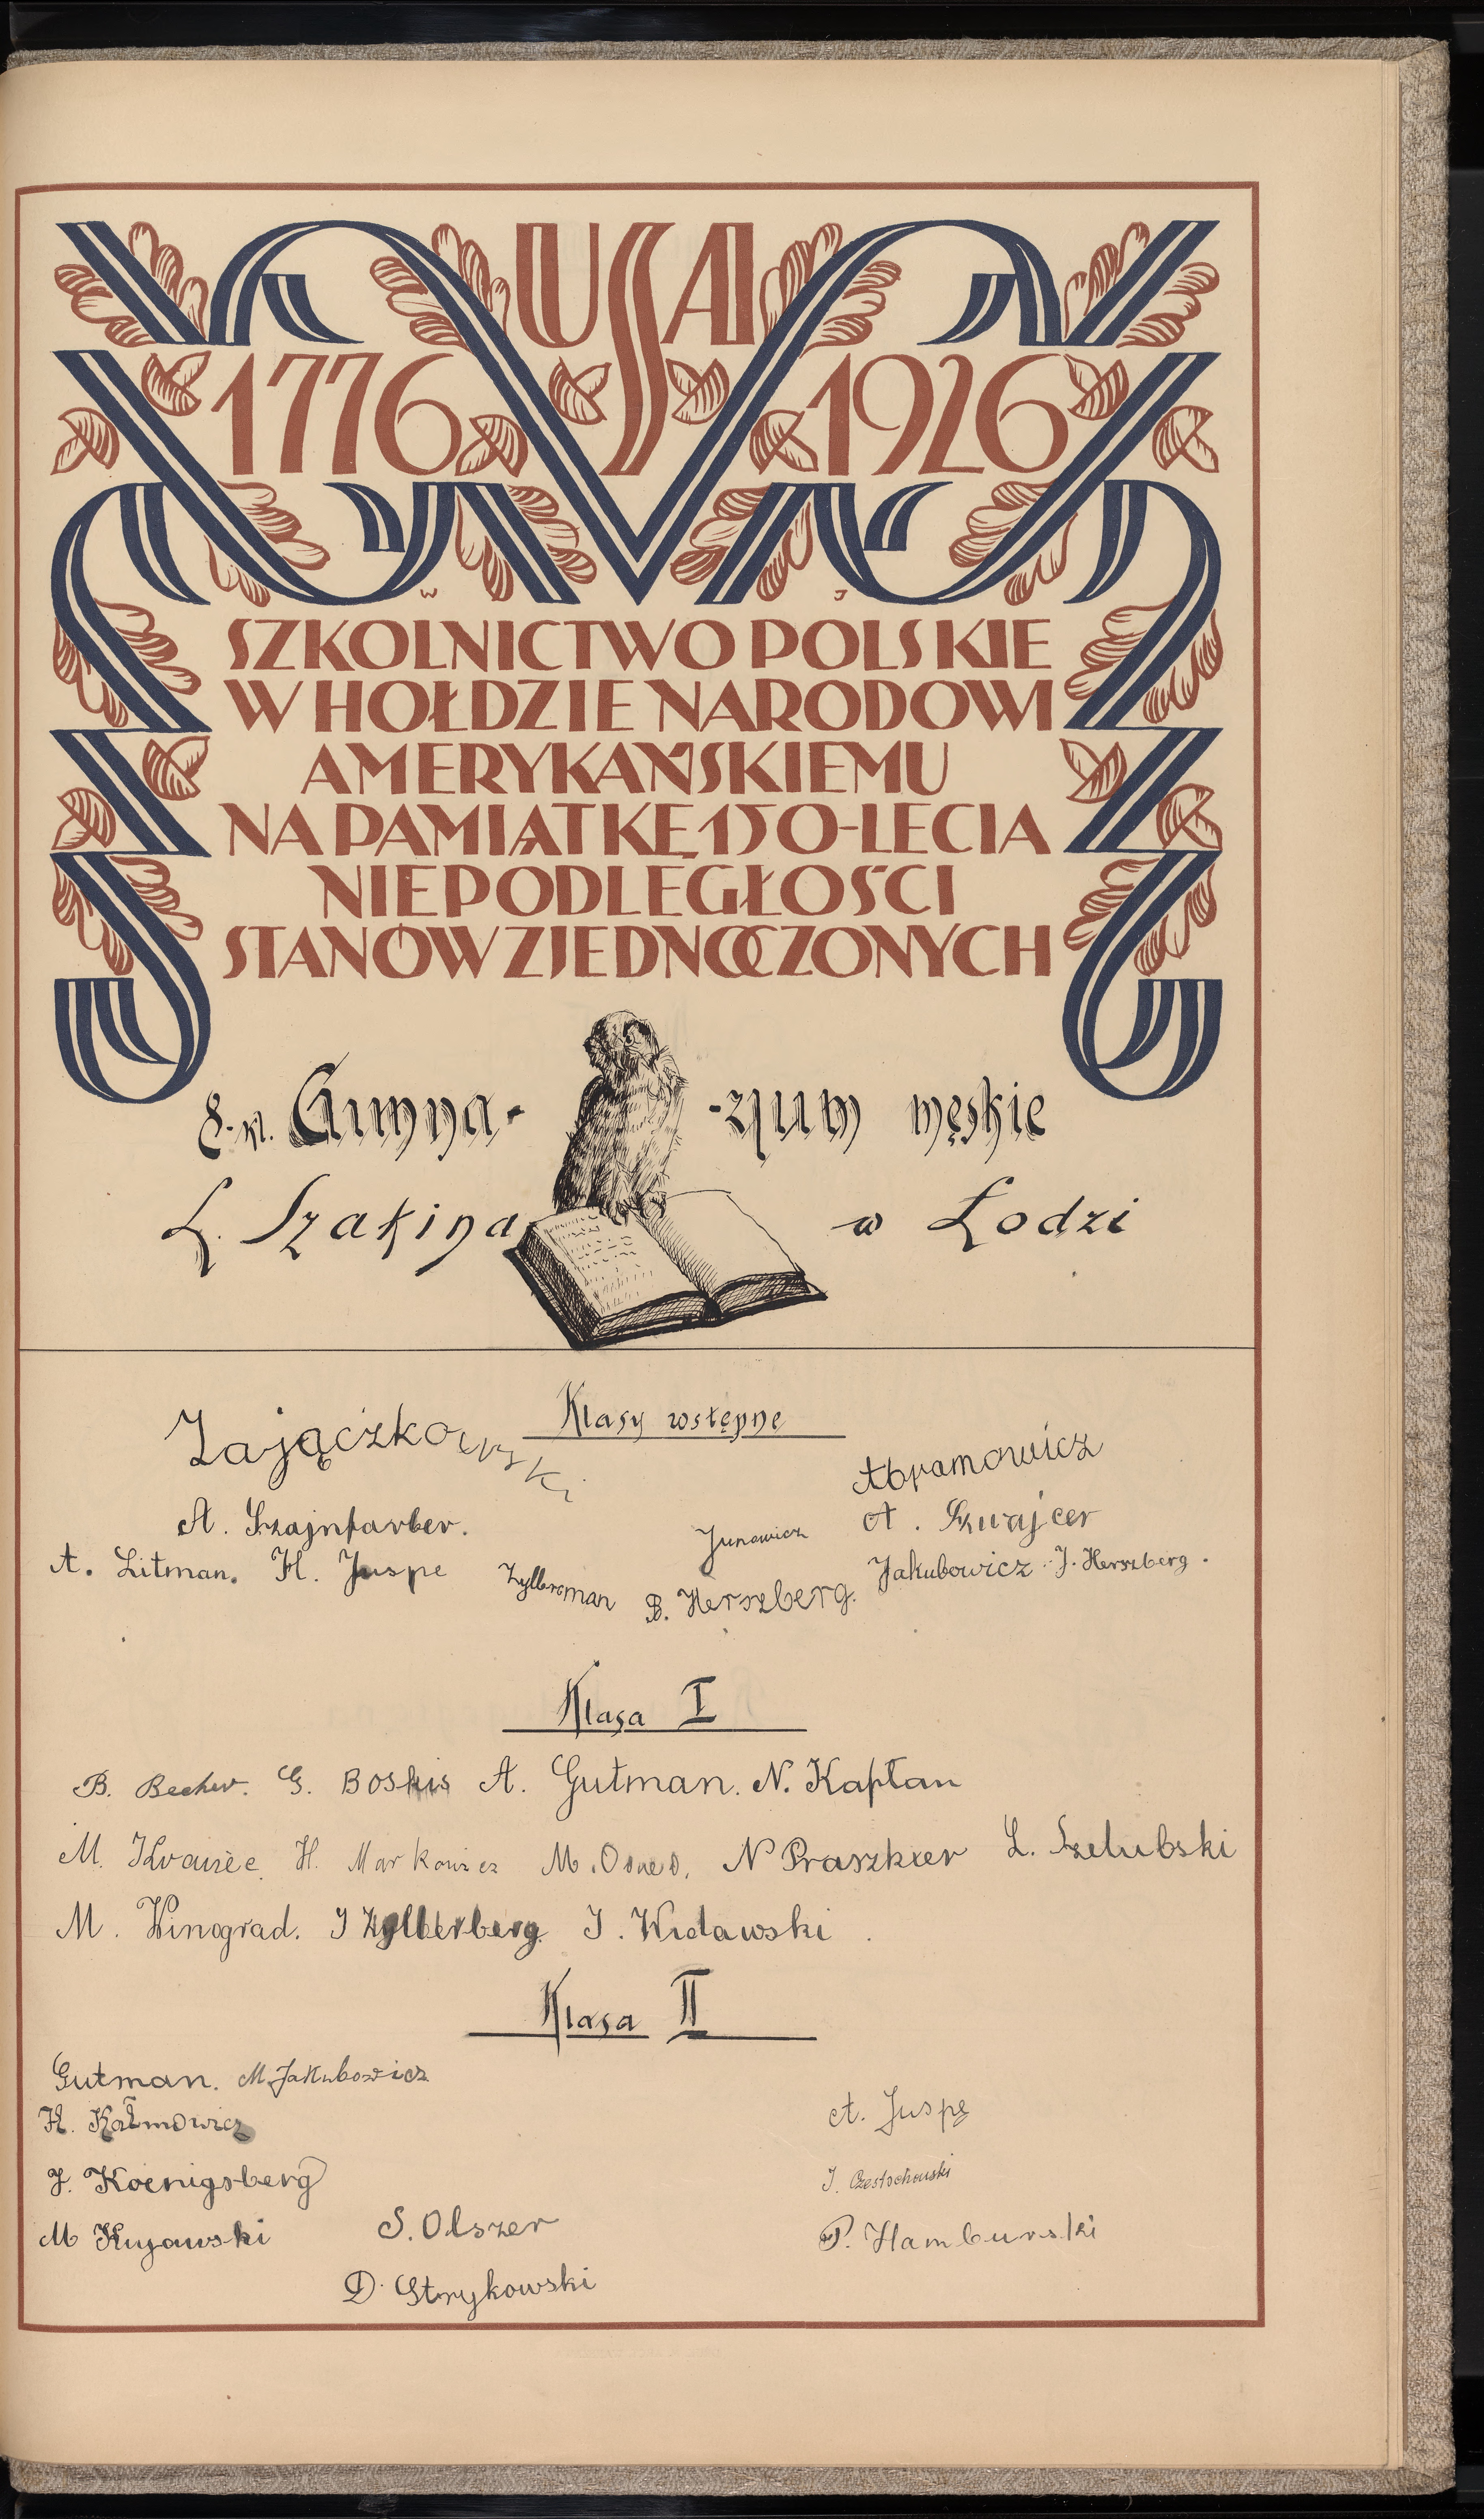 USA
1776 1926
W J
SZKOLNICTWO POLSKIE
W HOŁDZIE NARODOWI
AMERYKAŃSKIEMU
NA PAMIĄTKĘ 150-LECIA
NIEPODLEGŁOŚCI
STANÓW ZJEDNOCZONYCH
8-kl. Gimna- -zjum męskie
L. Szakina w Łodzi
Klasy wstępne
Zajączkowski
Abramowicz
A. Szajnfarber. A. Szwajcer
A. Litman. H. Juspe Zylberman B. Herszberg. Jakubowicz J. Herszberg.
Klasa I
B. Becher. G. Boskis A. Gutman. N. Kapłan
M. H. Markowicz M. N Praszkier L. Szelubski
M. Winograd. J Zylberberg. J. Widawski.
Klasa II
Gutman. M. Jakubowicz
H. Kałmowicz A. Juspe
J. Koenigsberg J. Częstochowski
M Kujawski S. Olszer P. Hamburski
D. Strykowski